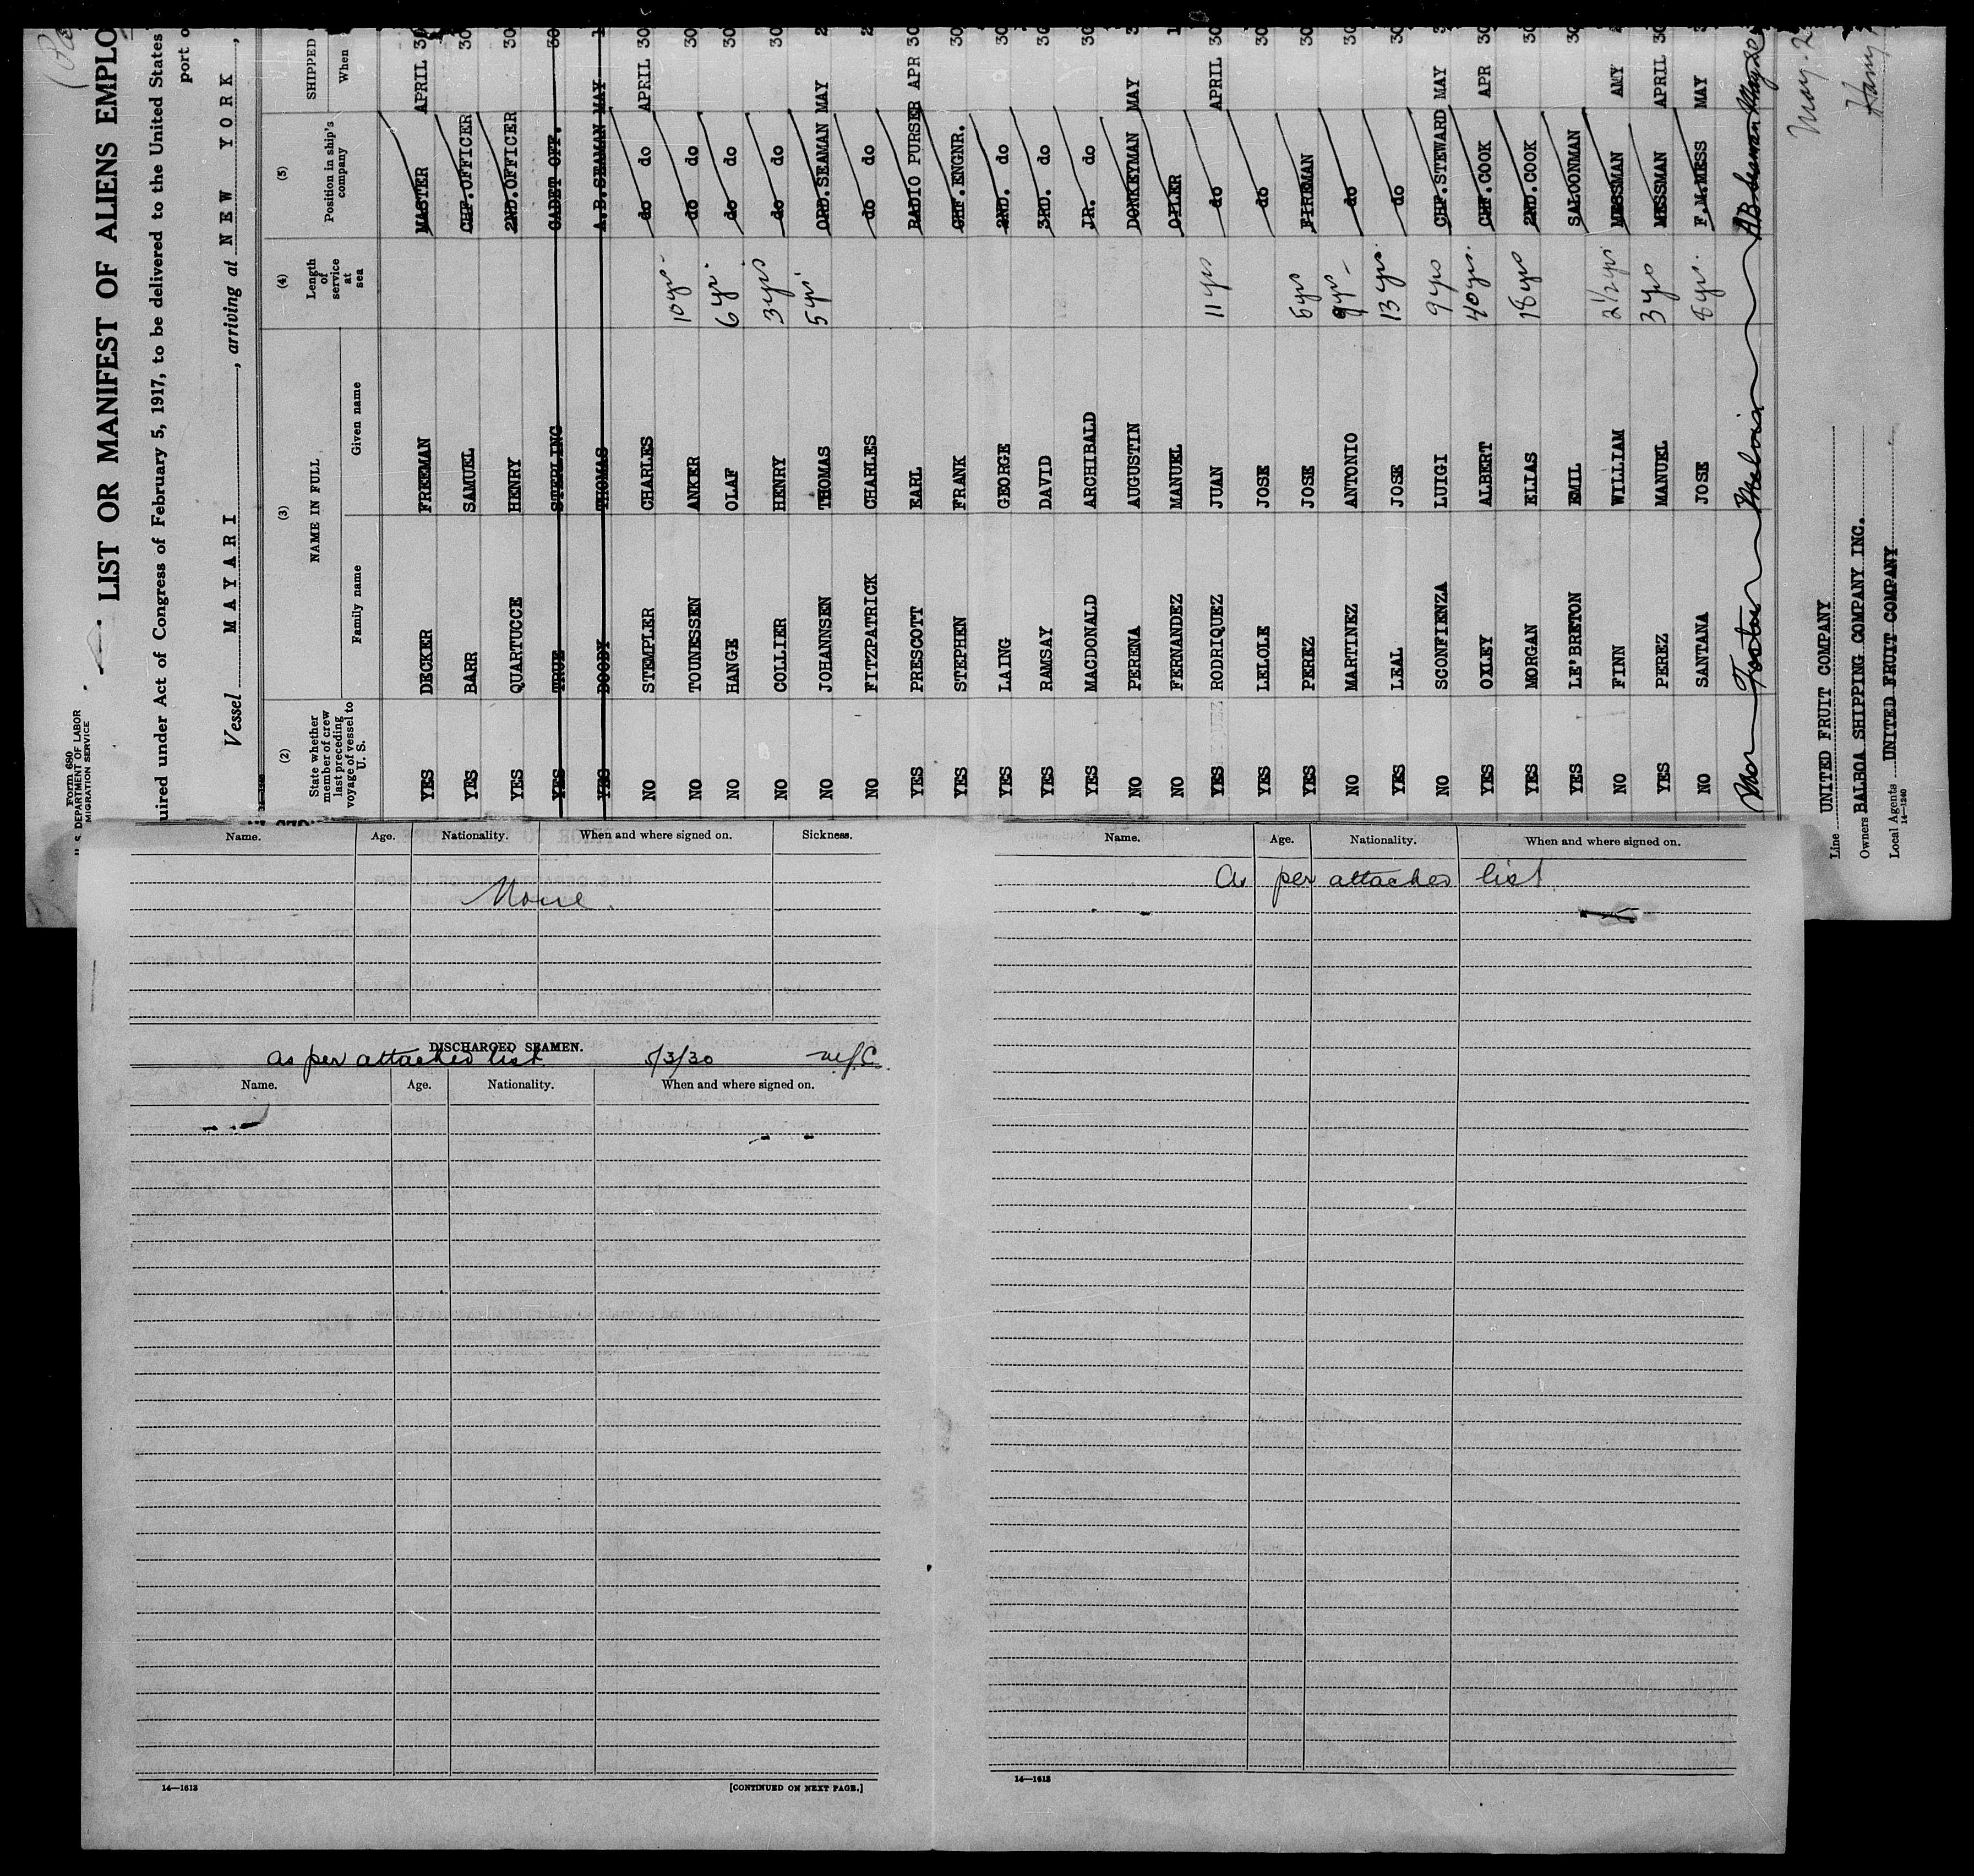 Form 680
U. S. DEPARTMENT OF LABOR
MIGRATION SERVICE
LIST OR MANIFEST OF ALIENS EMPLO
uired under Act of Congress of February 5, 1917, to be delivered to the United States
port o
Vessel MAYARI, arriving at NEW YORK,
(2) (3) (4) (5)
State whether member of crew last preceding voyage of vessel to U. S. NAME IN FULL Length of service at sea Position in ship's company SHIPPED
Family name Given name When
YES DECKER FREEMAN MASTER APRIL 30
YES BARR SAMUEL CHF.OFFICER 30
YES QUARTUCCE HENRY 2ND.OFFICER 30
YES TRUE STERLING CADET OFF. 30
YES DOODY THOMAS A.B.SEAMAN MAY 1
NO STEMPLER CHARLES do do APRIL 30
NO TOUNESSEN ANKER 10 yrs do do 30
NO HANGE OLAF 6 yr. do do 30
NO COLLIER HENRY 3 yrs do do 30
NO JOHANNSEN THOMAS 5 yrs ORD.SEAMAN MAY 2
NO FITZPATRICK CHARLES do do 2
YES PRESCOTT EARL RADIO PURSER APR 30
YES STEPHEN FRANK CHF.ENGNR. 30
YES LAING GEORGE 2ND. do 30
YES RAMSAY DAVID 3RD. do 30
YES MACDONALD ARCHIBALD JR. do 30
NO PERENA AUGUSTIN DONKEYMAN MAY 3
NO FERNANDEZ MANUEL OILER 1
YES RODRIQUEZ JUAN 11 yrs do APRIL 30
YES LELOLE JOSE do 30
YES PEREZ JOSE 5 yrs FIREMAN 30
NO MARTINEZ ANTONIO 9 yrs do 30
YES LEAL JOSE 13 yrs do 30
NO SCONFIENZA LUIGI 9 yrs CHF.STEWARD MAY 3
YES OXLEY ALBERT 40 yrs. CHF.COOK APR 30
YES MORGAN ELIAS 18 yrs 2ND.COOK 30
YES LE'BRETON EMIL SALOONMAN 30
NO FINN WILLIAM 2½ yrs MESSMAN AMY 2
YES PEREZ MANUEL 3 yrs MESSMAN APRIL 30
NO SANTANA JOSE 8 yrs. F.M.MESS MAY 3
Foster Melvin AB Seaman
Line UNITED FRUIT COMPANY
Owners BALBOA SHIPPING COMPANY INC.
Local Agents UNITED FRUIT COMPANY
14—1240
May. 2
Name. Age. Nationality. When and where signed on. Sickness.
None.
DISCHARGED SEAMEN.
as per attached list 5/3/30
Name. Age. Nationality. When and where signed on.
14—1613
[CONTINUED ON NEXT PAGE.]
Name. Age. Nationality. When and where signed on.
As per attached list
14—1613